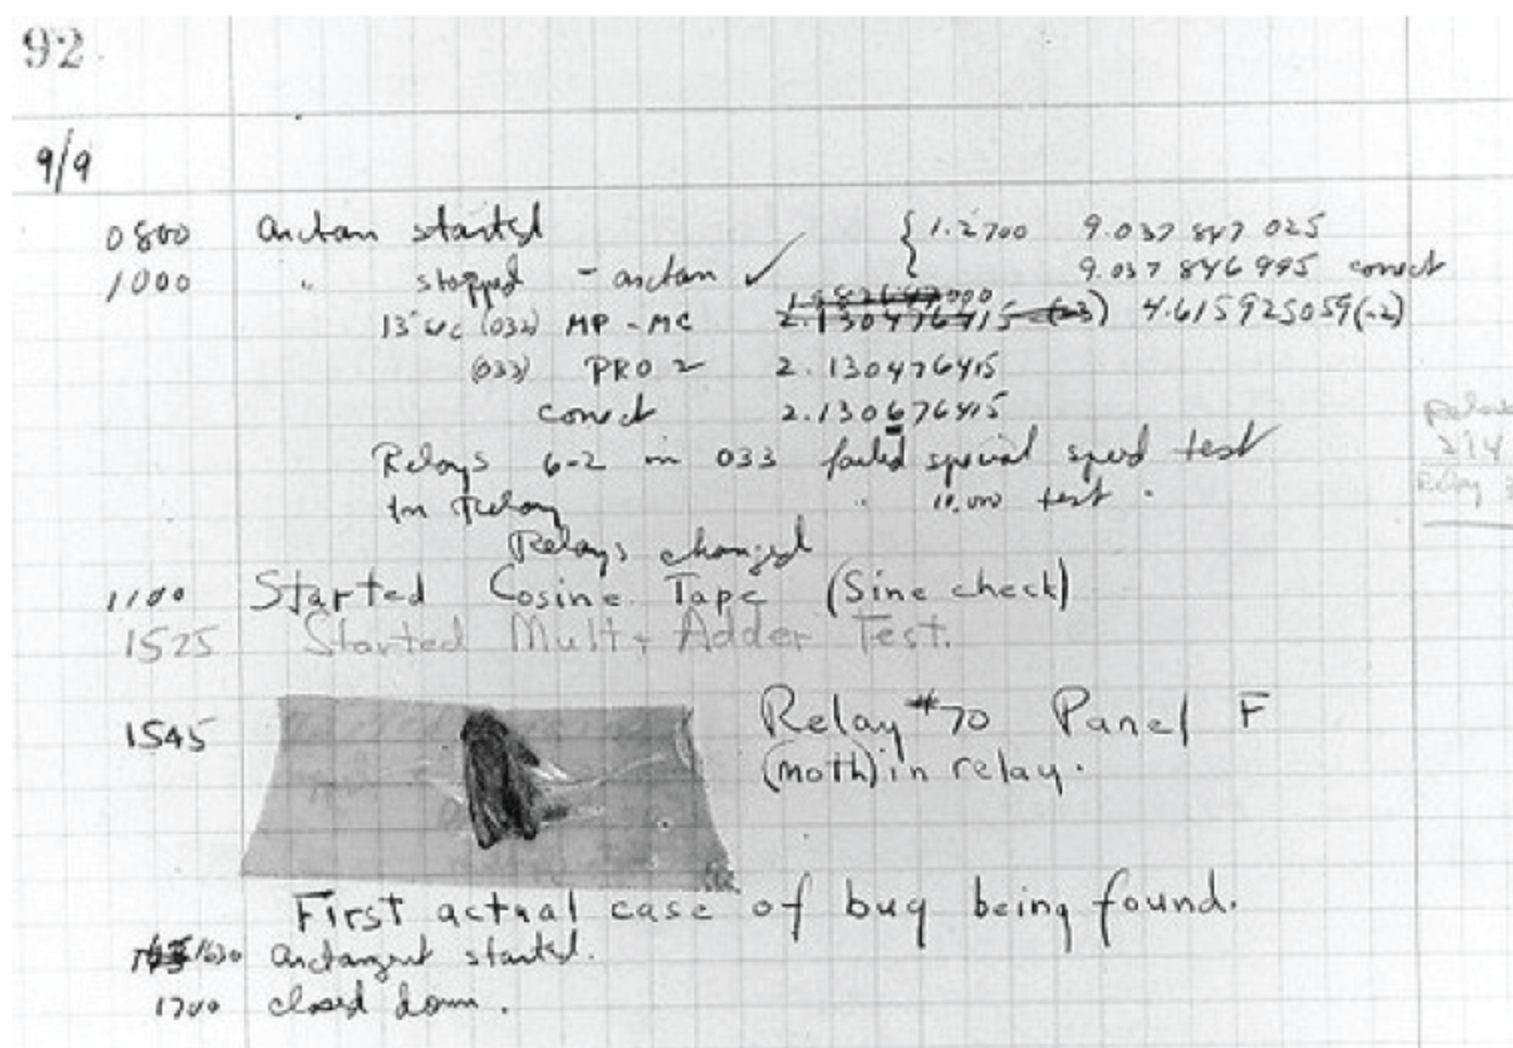 92
9/9
0800 arctan started { 1.2700 9.037 847 025
1000 " stopped - arctan ✓ 9.037 846 995 correct
13"uc (032) MP - MC 1.982647000 2.130476415 (-3) 4.615925059(-2)
(033) PRO 2 2.130476415
correct 2.130676415
Relays 6-2 in 033 failed special speed test
In Relay " 10,000 test.
Relays changed
1100 Started Cosine Tape (Sine check)
1525 Started Mult + Adder Test.
1545 Relay #70 Panel F
(moth) in relay.
First actual case of bug being found.
1630 arctangent started.
1700 closed down.
Relay
Relay